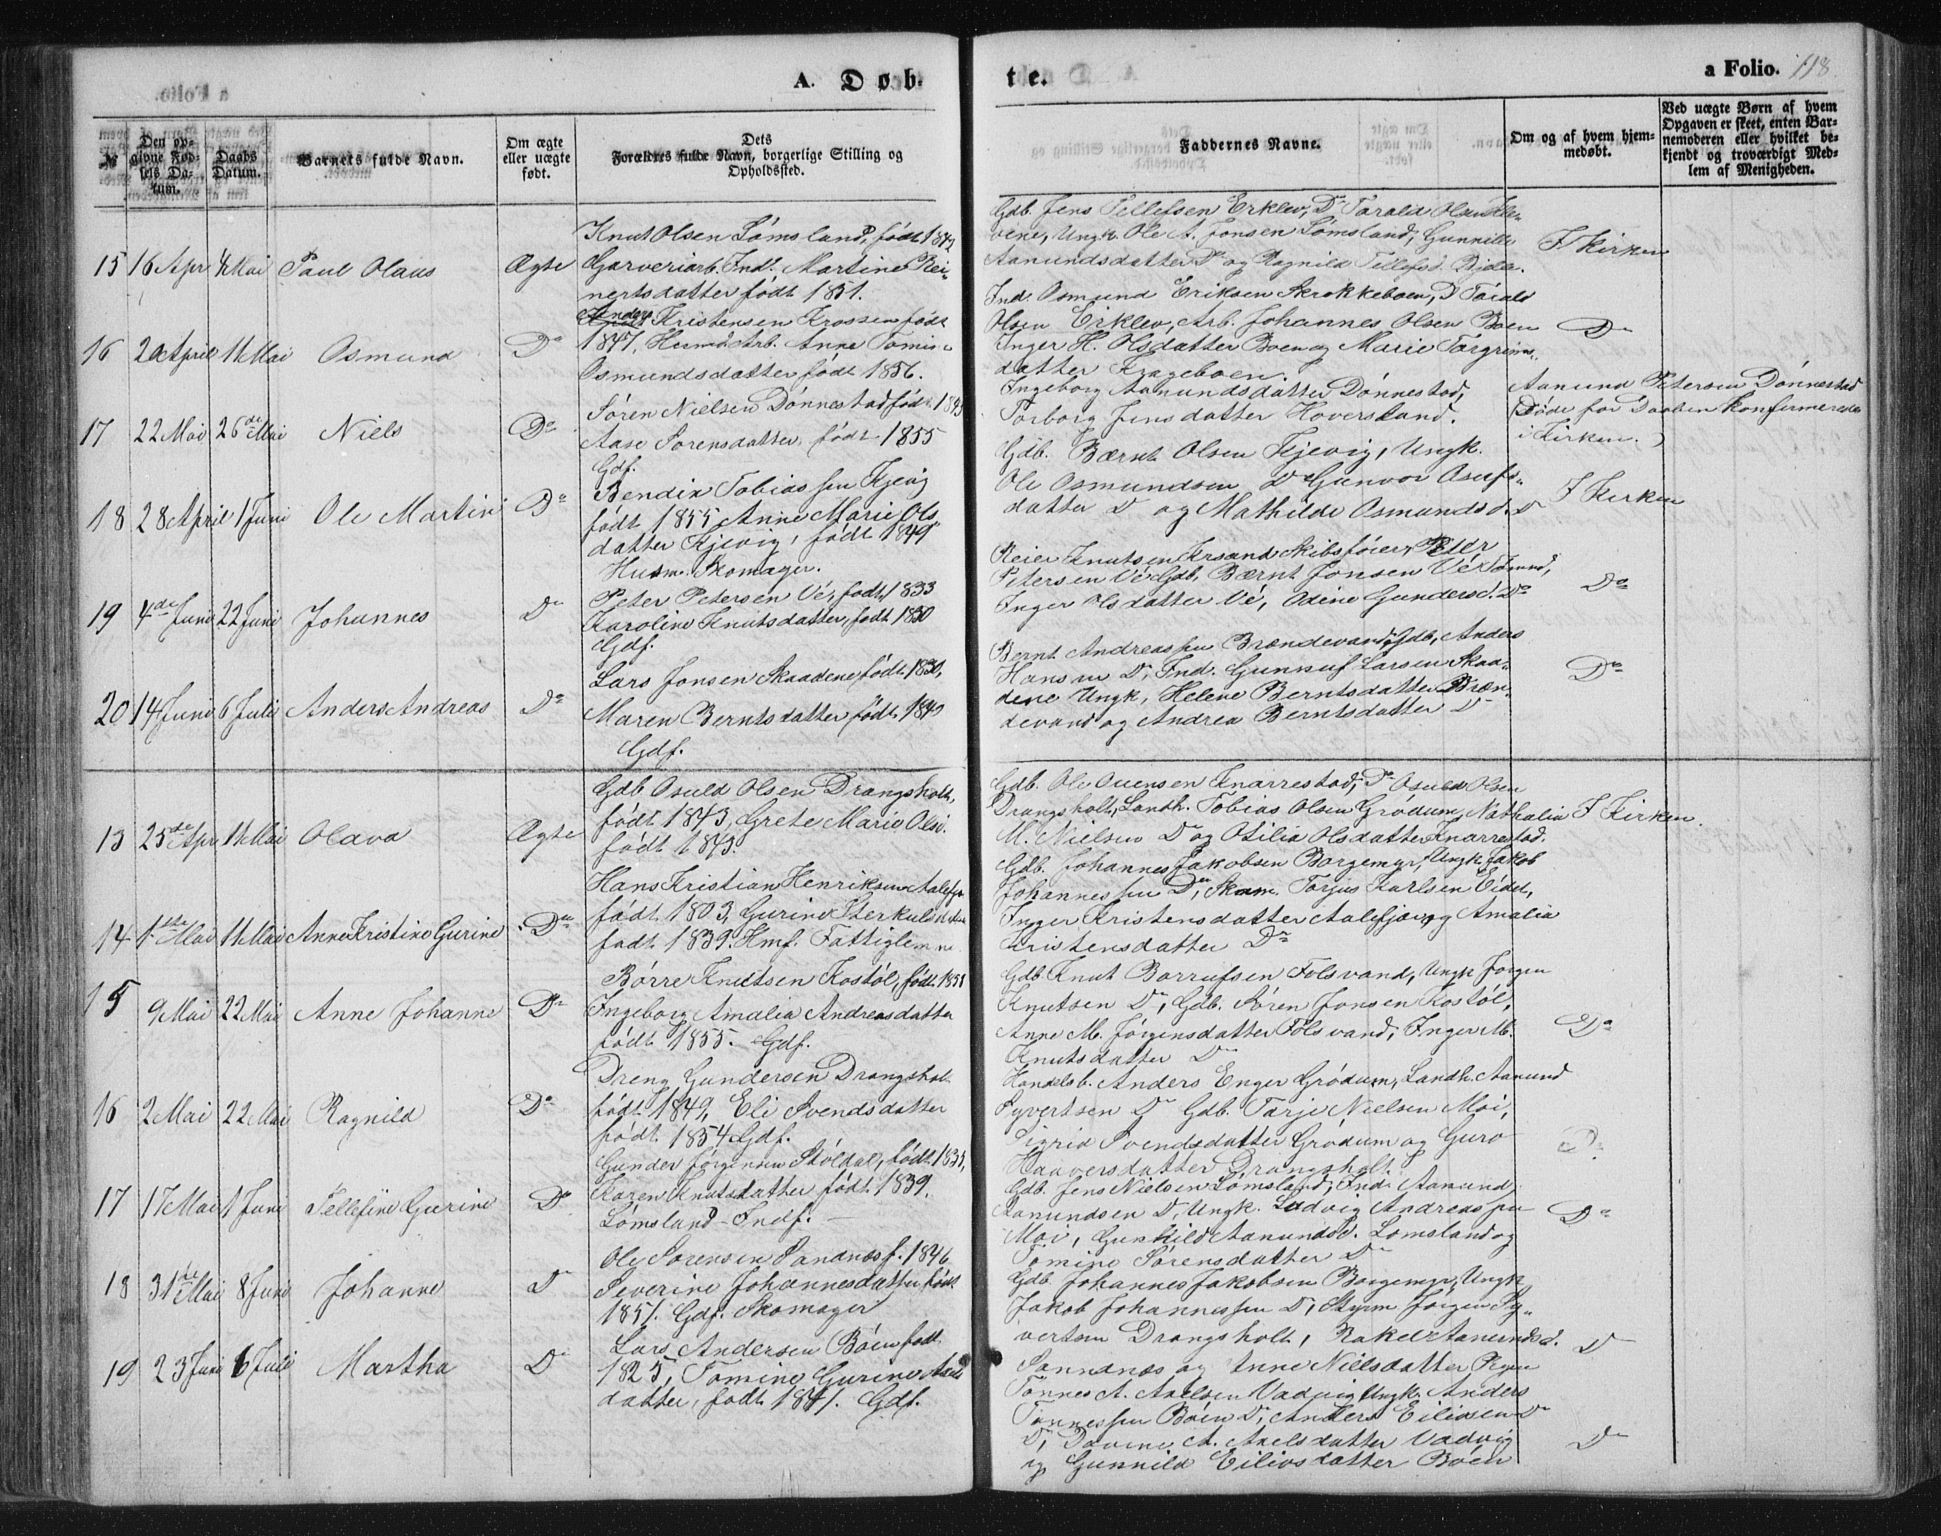 A. Døb-
te.
a Folio. 118.
№
Den op-
givne Fød-
sels Da-
tum.
Daabs
Datum.
Barnets fulde Navn.
Om ægte
eller uægte
født.
Dets
Forældres fulde Navn, borgerlige Stilling og
Opholdssted.
Faddernes Navne.
Om og af hvem hjem-
medøbt.
Ved uægte Børn af hvem
Opgaven er skeet, enten Bar-
nemoderen eller hvilket be-
kjendt og troværdigt Med-
lem af Menigheden.
15 16 Apr 4 Mai Paul Olaus Ægte
Knut Olsen Lómsland, født
Garveriarb. Ind. Martine Rei-
nertsdatter født 1851.
Gdb. Jens Tellefsen Erklev, Do Tarald Olsen
Ungk. Ole A. Jonsen Lómsland, Gunnild
Aanundsdatter Do og Ragnild Tellefsd.
I Kirken
16 20 April 11 Mai Osmund Do
Anders Kristensen Krossen født
1847, Arb. Anne Tomine
Osmundsdatter født 1856.
Ind. Osmund Eriksen Skrokkeboen, D Tarald
Olsen Erklev, Arb. Johannes Olsen Boen
Inger H. Olsdatter Boen og Marie Torgrims-
datter Krageboen
Do
17 22 Mai 26de Mai Niels Do
Sóren Nielsen Dónnestad født
Aase Sorensdatter, født 1855
Gdf.
Ingeborg Aanundsdatter Dónnestad,
Torborg Jensdatter Hoversland.
Aanund Petersen Dónnestad
(Døde før Daaben konfirmeredes
i Kirken.)
18 28 April 1 Juni Ole Martin Do
Bendix Tobiassen Kjevig
født 1855 Anne Marie Ols
datter Kjevig, født 1849
Husm. Skomager.
Gdb. Bærnt Olsen Kjevig, Ungk.
Ole Osmundsen Do Gunvor Osufs-
datter D og Mathilde Osmundsd. D
I Kirken
19 4de Juni 22 Juni Johannes D
Peter Petersen Vé, født 1833
Karoline Knutsdatter, født 1830
Gdf.
Reier Knutsen Krsand Skibsfóier, Peter
Petersen Vé Gdb, Bærnt Jonsen Vé
Inger Olsdatter Vé, Odine Gundersd. Do
Do
20 14 Juni 6 Juli Anders Andreas Do
Lars Jonsen Skaadene født 1830,
Maren Berntsdatter født
Gdf.
Bernt Andreassen Brændevand Gdb, Anders
Hansen D, Ind. Gunnuf Larsen Skaa-
dene Ungk, Helene Berntsdatter Bræn-
devand og Andrea Berntsdatter D
Do
13 25de Apr 11 Mai Olava Ægte
Gdb Osuld Olsen Drangsholt,
født 1843, Grete Marie Olsd.
født 1843.
Gdb. Ole Ouensen Knarrestad, Do Osuld Olsen
Drangsholt, Landh. Tobias Olsen Gródum, Nathalia
M. Nielsen Do og Otilia Olsdatter Knarrestad.
I Kirken.
14 1ste Mai 11 Mai Anne Kristine Gurine Do
Hans Kristian Henriksen
født 1803, Gurine
født 1839. Hmf. Fattiglem
Gdb. Johannes Jakobsen Borgemyr, Ungk Jakob
Johannessen Do, Torjus Karlsen Eidet,
Inger Kristensdatter Aalefjær og Amalia
Kristensdatter Do
15 9 Mai 22 Mai Anne Johanne Do
Børre Knutsen Kostól, født 1851
Ingeborg Amalia Andreasdatter
født 1855. Gdf.
Gdb. Knut Borrufsen Folsvand, Ungk Jórgen
Knutsen Do, Gdb. Sóren Jonsen Kostól,
Anne M. Jórgensdatter Folsvand, Inger M.
Knutsdatter Do
Do
16 2 Mai 22 Mai Ragnild Do
Dreng Gundersen Drangsholt
født 1849, Eli Svendsdatter
født 1854 Gdf.
Handelsb. Anders Enger Gródum, Landh. Aanund
Syvertsen Do Gdb. Tarje Nielsen Moi,
Sigrid Svendsdatter Gródum og Guro
Haaversdatter Drangsholt.
Do
17 17 Mai 1 Juni Tellefine Gurine Do
Gunder Jórgensen Stóldal, født
Karen Knutsdatter født 1839.
Lómsland - Indf.
Gdb. Jens Nielsen Lómsland, Ind. Aanund
Aanundsen D, Ungk. Ludvig Andreassen
Moi, Gunhild Aanundsd. Lomsland og
Tomine Sórensdatter Do
Do
18 31te Mai 8 Juni Johanne D
Ole Sorensen Sandnæs f. 1846
Severine Johannesdatter født
1851. Gdf. Skomager
Gdb. Johannes Jakobsen Borgemyr, Ungk
Jakob Johannessen D, Jórgen Sy-
vertsen Drangsholt, Rakel Aanundsd.
Sandnæs og Anne Nielsdatter
D
19 23 Juni 6 Juli Martha D
Lars Andersen Bóen født
1825, Tomine Gurine
datter, født 1841. Gdf.
Tónnes A. Axelsen Vadvig Ungk. Anders
Tónnessen Bóen D, Anders Eilivsen Do
D, A. Axelsdatter Vadvig
og Gunnild Eilivsdatter Bóen
D